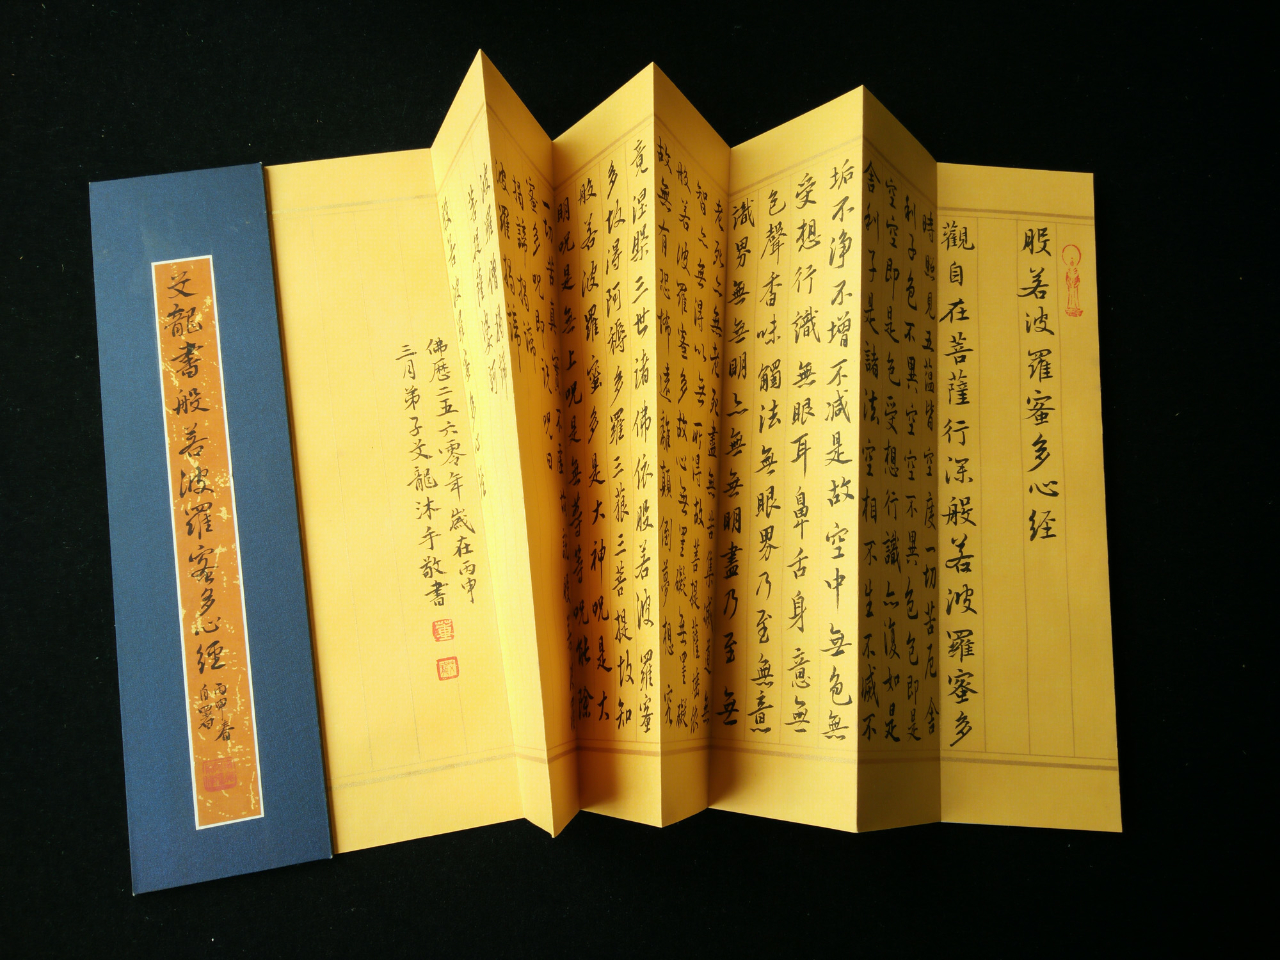 般若波羅蜜多心经
觀自在菩薩行深般若波羅蜜多
時照見五蕴皆空度一切苦厄舍
利子色不異空空不異色色即是
空空即是色受想行識亦復如是
舍利子是諸法空相不生不滅不
垢不净不增不减是故空中無色無
受想行識無眼耳鼻舌身意無
色聲香味觸法無眼界乃至無意
識界無無明亦無無明盡乃至無
老死亦無老死盡無苦集滅道無
智亦無得以無所得故菩提薩埵依
般若波羅蜜多故心無罣礙無罣礙
故無有恐怖遠離顛倒夢想究
竟涅槃三世諸佛依般若波羅蜜
多故得阿耨多羅三藐三菩提故知
般若波羅蜜多是大神咒是大
明咒是無上咒是無等等咒能除
一切苦真實不虚故説
蜜多咒即说咒曰
揭諦揭諦
波羅揭諦
波羅僧揭諦
菩提薩婆訶
般若波羅蜜多心經
佛歷二五六零年歲在丙申
三月弟子艾龍沐手敬書
艾龍書般若波羅蜜多心經
丙申春
自署